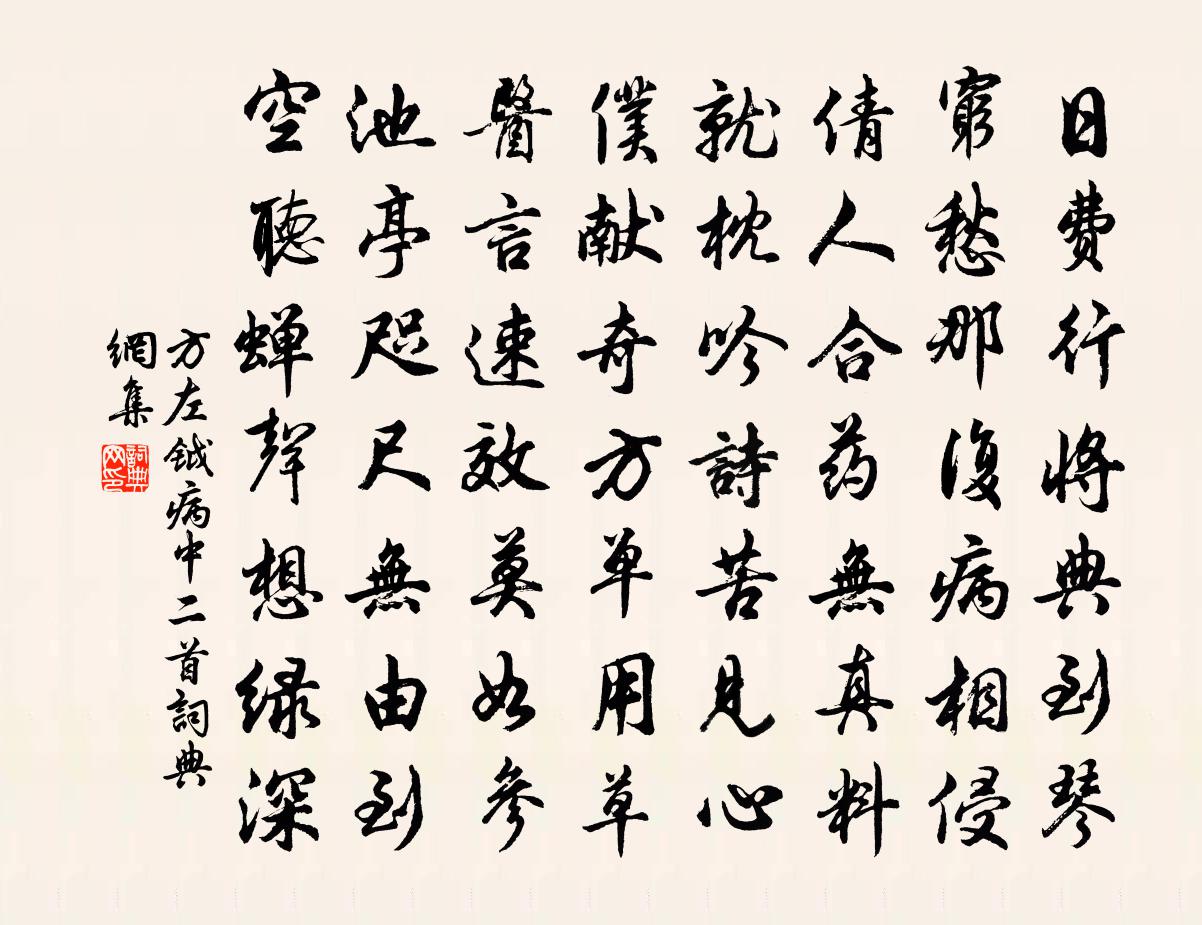 日費行將典到琴
窮愁那復病相侵
倩人合药無真料
就枕吟詩苦見心
僕献奇方单用草
醫言速效莫如參
池亭咫尺無由到
空聽蝉聲想緑深
方左鉞病中二首詞典
網集
詞典
网印